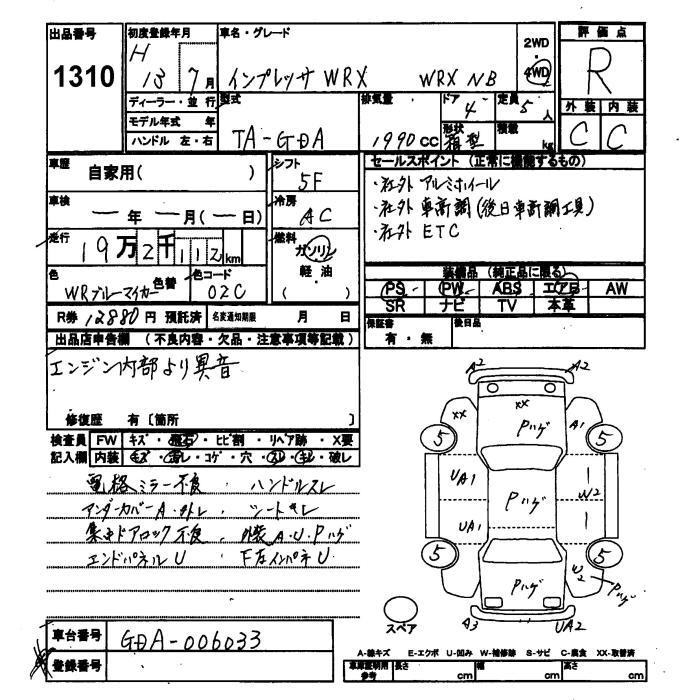 出品番号
1310
初度登録年月
H
13 7月
車名・グレード
インプレッサ WRX WRX NB
2WD
4WD
評価点
R
外装 内装
C C
ディーラー・並行
モデル年式 年
ハンドル 左・右
型式
TA-GDA
排気量
1990 CC
ドア
4
形状
箱型
定員
5人
積載
kg
車歴
自家用( )
車検
― 年 ― 月(― 日)
走行
19万2千112km
色
WRブルーマイカ
色替
色コード
02C
シフト
5F
冷房
AC
燃料
ガソリン
軽・油
( )
R券 12880円 預託済
名変通知期限 月 日
セールスポイント (正常に機能するもの)
・社外 アルミホイール
・社外 車高調(後日車高調工具)
・社外 ETC
装備品 (純正品に限る)
PS PW ABS エアB AW
SR ナビ TV 本革
保証書 有・無
後日品
出品店申告欄 (不良内容・欠品・注意事項等記載)
エンジン内部より異音
修復歴 有〔箇所 〕
検査員
記入欄
FW キズ・飛石・ヒビ割・リペア跡・X要
内装 キズ・汚レ・コゲ・穴・スレ・キレ・破レ
電格ミラー不良 ・ハンドルスレ
アンダーカバーA・外レ ・シートキレ
集中ドアロック不良 ・外装A.U.Pハゲ
エンドパネルU ・F左インパネU
車台番号
GDA-006033
登録番号
A2 A2
XX XX
Pハゲ
A1
5 5
UA1
Pハゲ
W2
UA1
5 5
Pハゲ
W2
Pハゲ
A3 UA2
スペア
A-線キズ E-エクボ U-凹み W-補修跡 S-サビ C-腐食 XX-取替済
車庫証明用
参考
長さ cm
幅 cm
高さ cm